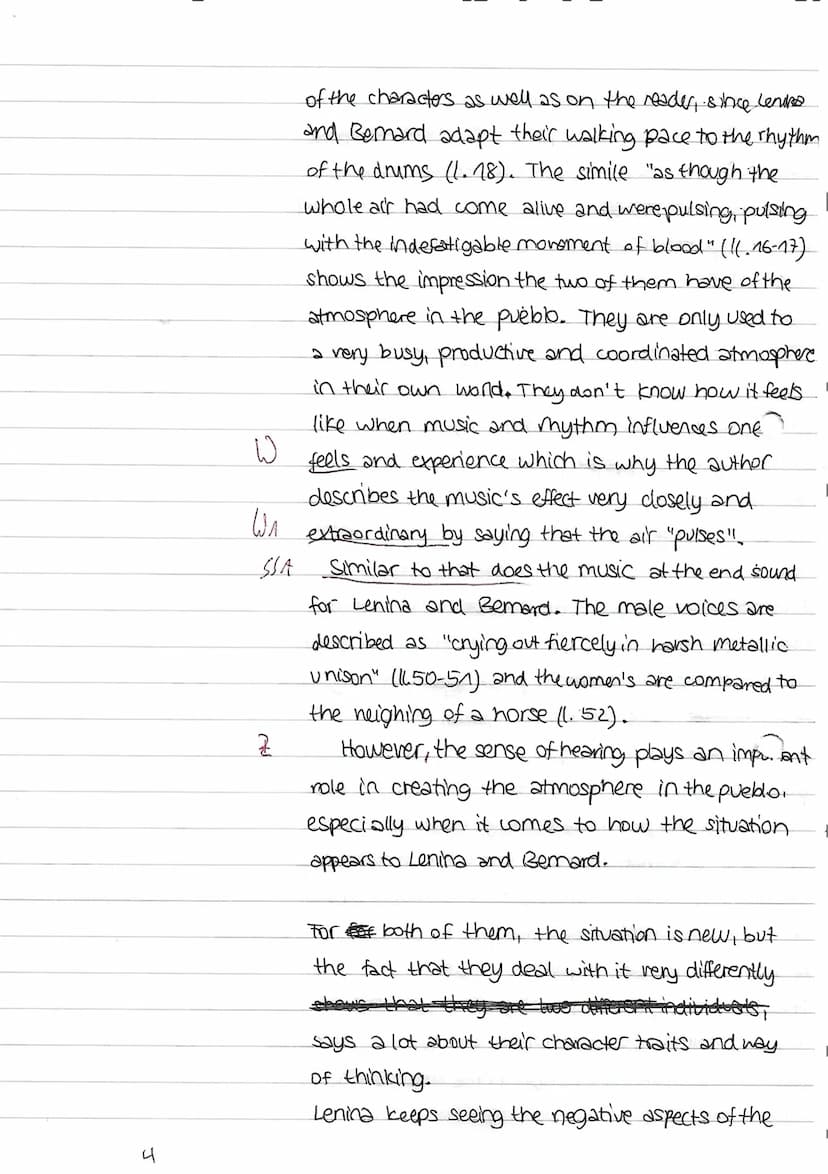 of the characters as well as on the reader, since Lenina
and Bernard adapt their walking pace to the rhythm
of the drums (l. 18). The simile "as though the
whole air had come alive and were pulsing, pulsing
with the indefatigable movement of blood" (ll. 16-17)
shows the impression the two of them have of the
atmosphere in the pueblo. They are only used to
a very busy, productive and coordinated atmosphere
in their own world. They don't know how it feels
like when music and rhythm influences one
W feels and experience which is why the author
describes the music's effect very closely and
W1 extraordinary by saying that the air "pulses".
SSA Similar to that does the music at the end sound
for Lenina and Bernard. The male voices are
described as "crying out fiercely in harsh metallic
unison" (ll. 50-51) and the women's are compared to
the neighing of a horse (l. 52).
Z However, the sense of hearing plays an important
role in creating the atmosphere in the pueblo,
especially when it comes to how the situation
appears to Lenina and Bernard.
For both of them, the situation is new, but
the fact that they deal with it very differently
shows that they are two different individuals,
says a lot about their character traits and way
of thinking.
Lenina keeps seeing the negative aspects of the
4